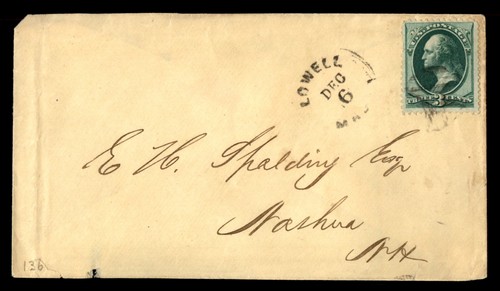 U.S. POSTAGE
THREE CENTS
3
LOWELL
DEC
6
MAS
E. H. Spalding Esq
Nashua
N.H
136